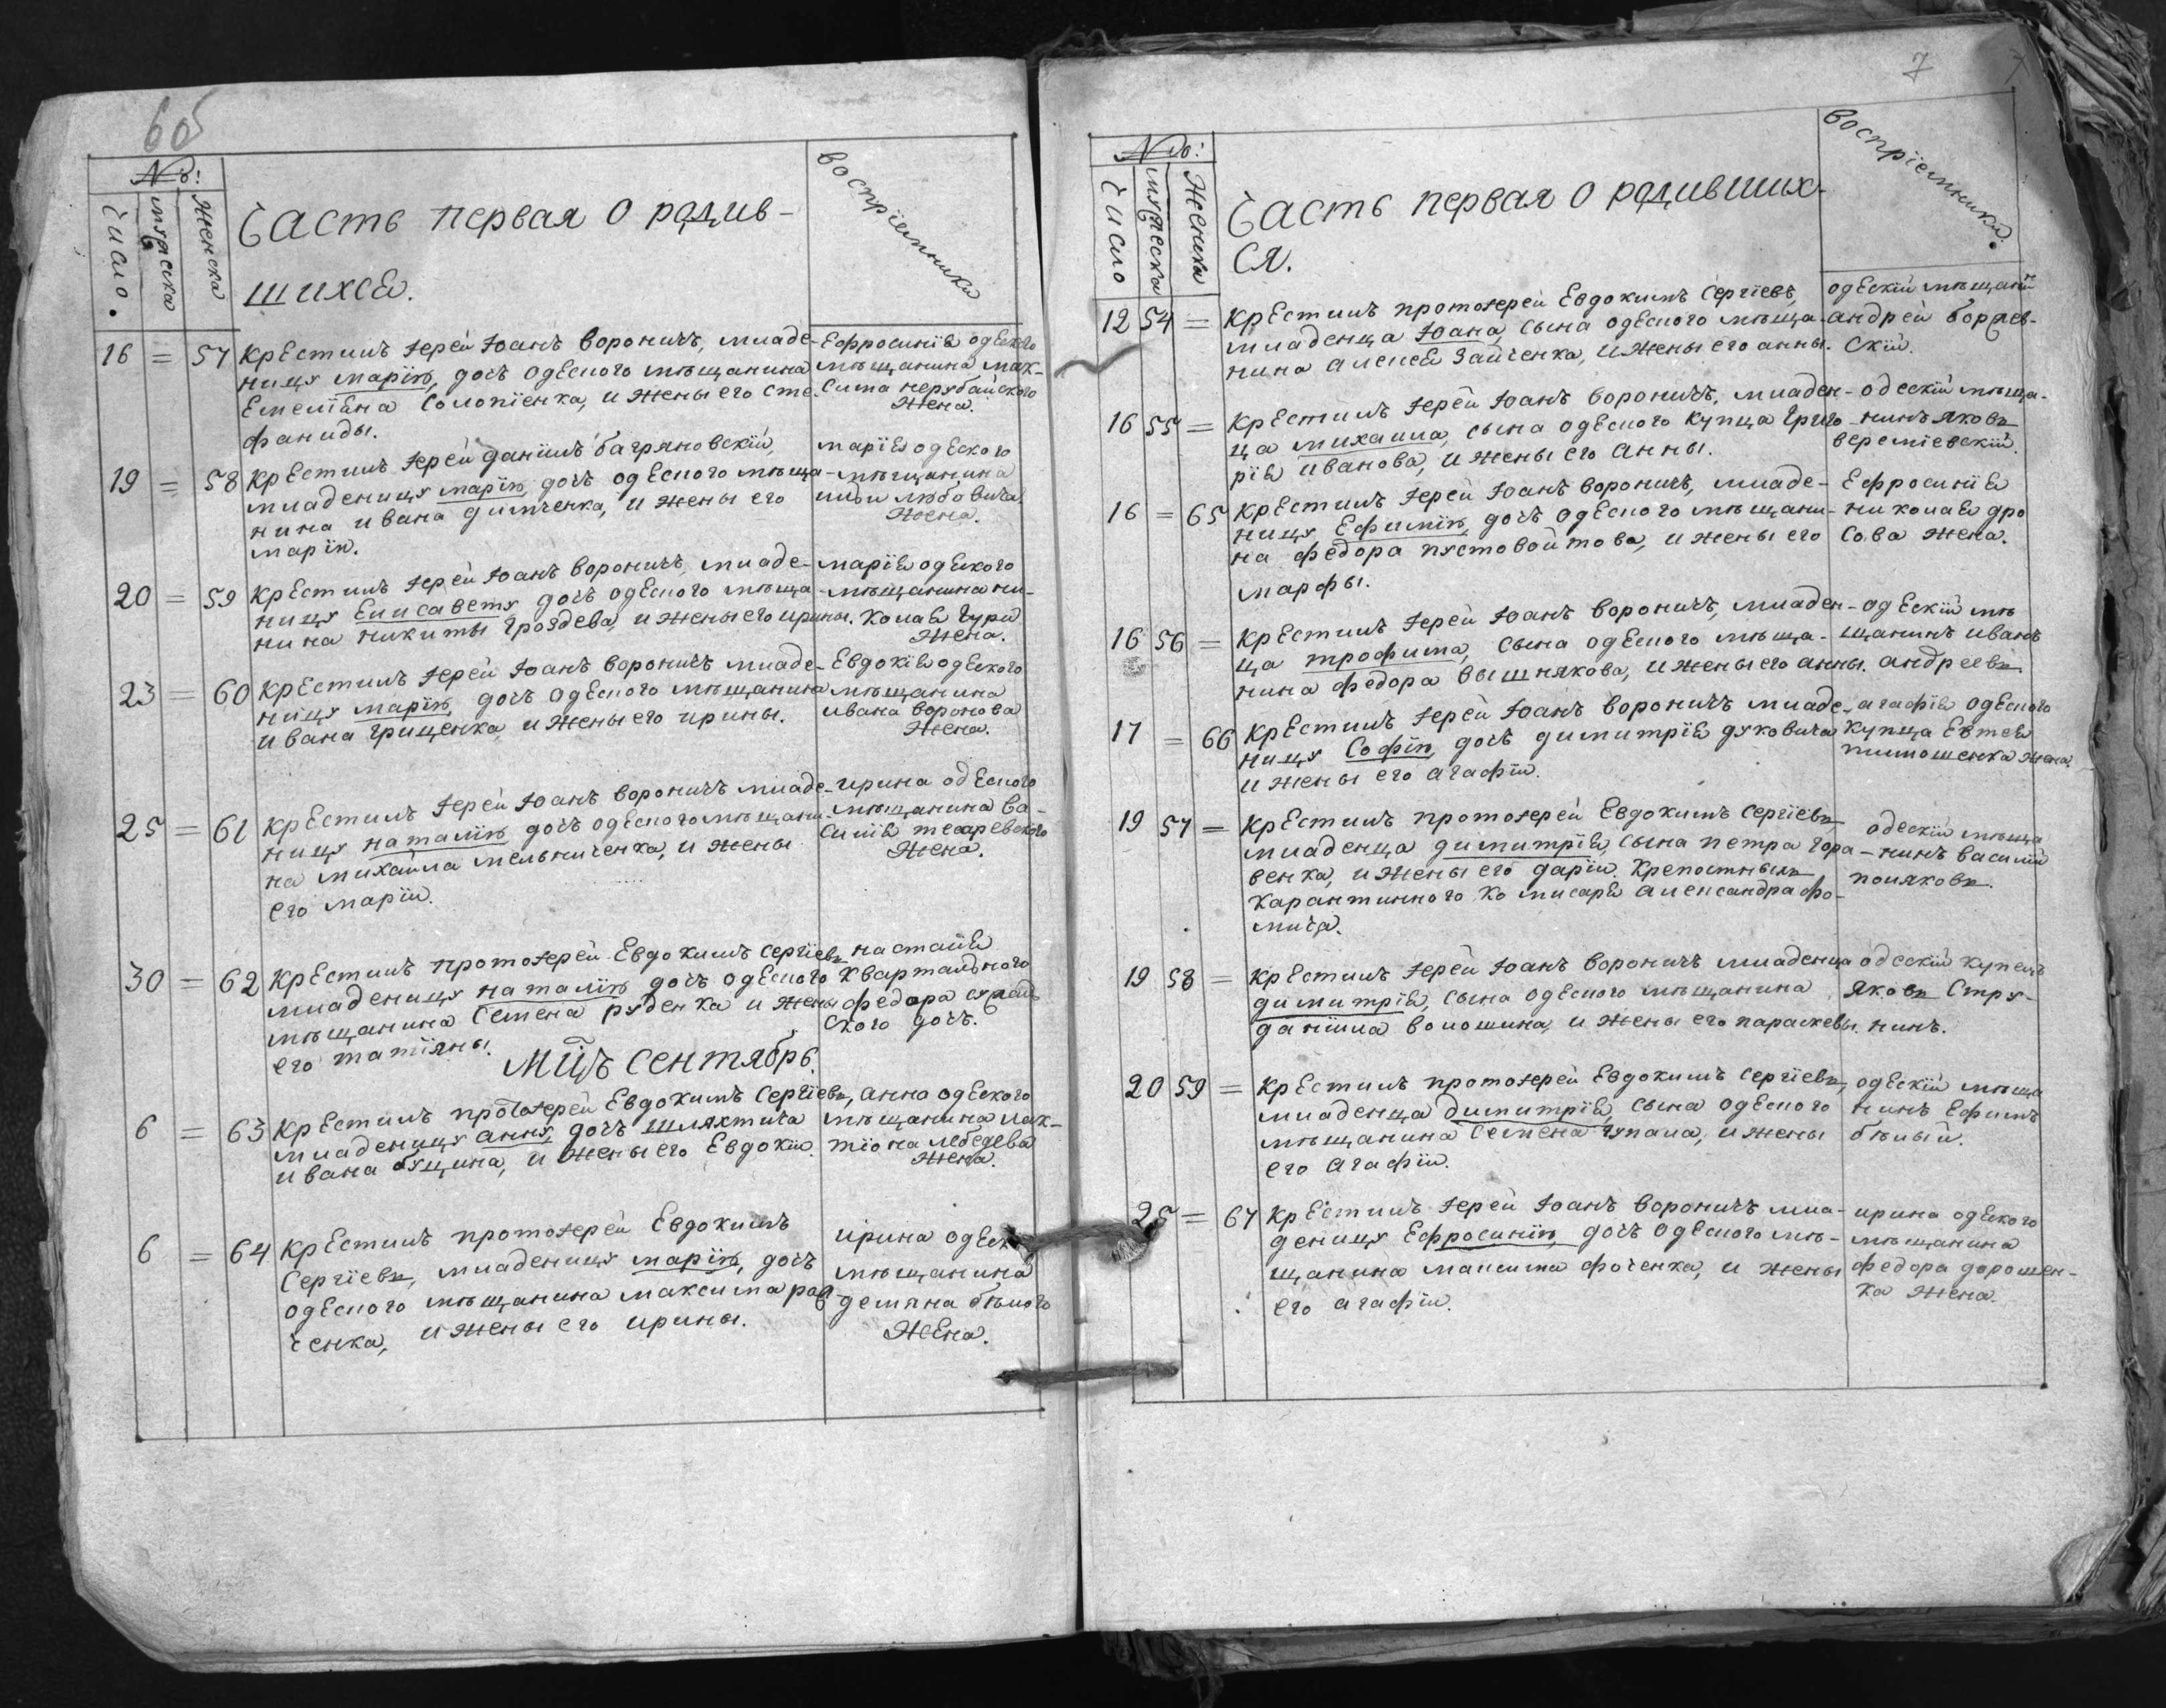 6об
№:
Число.
мужеска
Женска
Часть первая о родив-
шихся.
воспріемники
16 = 57 Крестилъ іерей Іоанъ Вороничъ, младе-
ницу Марію, дочь одеского мѣщанина
Емеліяна Солопіенка, и жены его Сте-
фаниды.
Ефросинія одеского
мѣщанина Мак-
сима Нерубайского
жена.
19 = 58 Крестилъ іерей Даніилъ Багряновскій,
младеницу Марію, дочь одеского мѣща-
нина Ивана Димченка, и жены его
Маріи.
Марія одеского
мѣщанина
Ильи Любовича
жена.
20 = 59 Крестилъ іерей Іоанъ Вороничъ, младе-
ницу Елисавету дочь одеского мѣща-
нина Никиты Гроздева, и жены его Ирины.
Марія одеского
мѣщанина Ни-
колая Гури
жена.
23 = 60 Крестилъ іерей Іоанъ Вороничъ младе-
ницу Марію, дочь одеского мѣщанина
Ивана Грищенка, и жены его Ирины.
Евдокія одеского
мѣщанина
Ивана Воронова
жена.
25 = 61 Крестилъ іерей Іоанъ Вороничъ младе-
ницу Наталію, дочь одеского мѣщани-
на Михайла Мельниченка, и жены
его Маріи.
Ирина одеского
мѣщанина Ва-
силія
жена.
30 = 62 Крестилъ протоіерей Евдокимъ Сергіевъ
младеницу Наталію дочь одеского
мѣщанина Семена Руденка и жены
его Татіяны.
Настасія
Квартального
Федора
ского дочь.
Мцъ Сентябрь.
6 = 63 Крестилъ протоіерей Евдокимъ Сергіевъ,
младеницу Анну, дочь шляхтича
Ивана Бущина, и жены его Евдокіи.
Анна одеского
мѣщанина Лак-
тіона Лебедева
жена.
6 = 64 Крестилъ протоіерей Евдокимъ
Сергіевъ, младеницу Марію, дочь
одеского мѣщанина Максима
ченка, и жены его Ирины.
Ирина одеск
мѣщанина
Демяна Бѣлого
жена.
7
№:
Число
мужеска
Женска
Часть первая о родивших-
ся.
воспріемники.
12 54 = Крестилъ протоіерей Евдокимъ Сергіевъ,
младенца Іоана, сына одеского мѣща-
нина Алексея Зайченка, и жены его Анны.
одескій мѣщанинъ
Андрей
скій.
16 55 = Крестилъ іерей Іоанъ Вороничъ, младен-
ца Михаила, сына одеского купца Григо-
рія Иванова, и жены его Анны.
одескій мѣща-
нинъ Яковъ
Веремѣевскій.
16 = 65 Крестилъ іерей Іоанъ Вороничъ, младе-
ницу Ефимію, дочь одеского мѣщани-
на Федора Пустовойтова, и жены его
Марфы.
Ефросинія
Николая Дро
сова жена.
16 56 = Крестилъ іерей Іоанъ Вороничъ, младен-
ца Трофима, сына одеского мѣща-
нина Федора Вышнякова, и жены его Анны.
одескій мѣ
щанинъ Иванъ
Андреевъ
17 = 66 Крестилъ іерей Іоанъ Вороничъ младе-
ницу Софію, дочь Димитрія Духовича
и жены его Агафіи.
Агафія одеского
купца Евтея
Тимошенка жена.
19 57 = Крестилъ протоіерей Евдокимъ Сергіевъ,
младенца Димитрія, сына Петра Гора-
венка, и жены его Даріи. Крепостныхъ
Карантинного Комисаря Александра Фо-
мича.
одескій мѣща
нинъ Василій
Поляковъ.
19 58 = Крестилъ іерей Іоанъ Вороничъ младенца
Димитрія, сына одеского мѣщанина
Даніила Волошина, и жены его Параскевы.
одескій купецъ
Яковъ Стру-
нинъ.
20 59 = Крестилъ протоіерей Евдокимъ Сергіевъ,
младенца Димитрія, сына одеского
мѣщанина Семена Чупала, и жены
его Агафіи.
одескій мѣща
нинъ Ефимъ
Бѣлый.
25 = 67 Крестилъ іерей Іоанъ Вороничъ мла-
деницу Ефросинію, дочь одеского мѣ-
щанина Максима Фоченка, и жены
его Агафіи.
Ирина одеского
мѣщанина
Федора Дорошен-
ка жена.